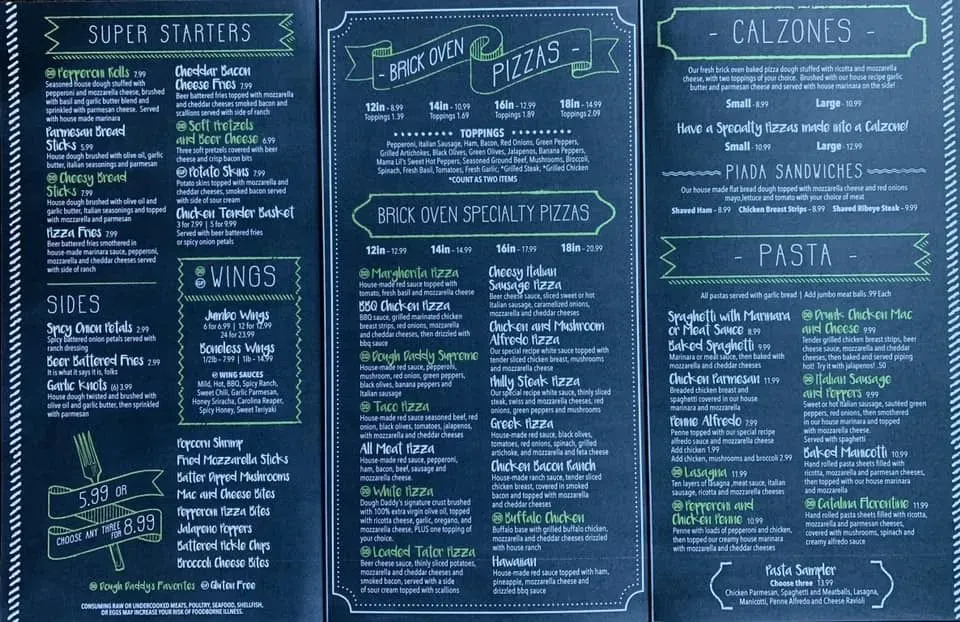 SUPER STARTERS
Pepperoni Rolls 7.99
Seasoned house dough stuffed with
pepperoni and mozzarella cheese, brushed
with basil and garlic butter blend and
sprinkled with parmesan cheese. Served
with house made marinara
Parmesan Bread
Sticks 5.99
House dough brushed with olive oil, garlic
butter, italian seasonings and parmesan
Cheesy Bread
Sticks 7.99
House dough brushed with olive oil and
garlic butter, Italian seasonings and topped
with mozzarella and parmesan
Pizza Fries 7.99
Beer battered fries smothered in
house-made marinara sauce, pepperoni,
mozzarella and cheddar cheeses served
with side of ranch
Cheddar Bacon
Cheese Fries 7.99
Beer battered fries topped with mozzarella
and cheddar cheeses smoked bacon and
scallions served with side of ranch
Soft Pretzels
and Beer Cheese 6.99
Three soft pretzels covered with beer
cheese and crisp bacon bits
GF Potato Skins 7.99
Potato skins topped with mozzarella and
cheddar cheeses, smoked bacon served
with side of sour cream
Chicken Tender Basket
3 for 7.99 | 5 for 9.99
Served with beer battered fries
or spicy onion petals
SIDES
Spicy Onion Petals 2.99
Spicy battered onion petals served with
ranch dressing
Beer Battered Fries 2.99
It is what it says it is, folks
Garlic Knots (6) 3.99
House dough twisted and brushed with
olive oil and garlic butter, then sprinkled
with parmesan
GF WINGS
Jumbo Wings
6 for 6.99 | 12 for 12.99
24 for 23.99
Boneless Wings
1/2lb - 7.99 | 1lb - 14.99
WING SAUCES
Mild, Hot, BBQ, Spicy Ranch,
Sweet Chili, Garlic Parmesan,
Honey Sriracha, Carolina Reaper,
Spicy Honey, Sweet Teriyaki
5.99 OR
CHOOSE ANY THREE FOR 8.99
Popcorn Shrimp
Fried Mozzarella Sticks
Batter Dipped Mushrooms
Mac and Cheese Bites
Pepperoni Pizza Bites
Jalapeno Poppers
Battered Pickle Chips
Broccoli Cheese Bites
DD Dough Daddy's Favorites GF Gluten Free
CONSUMING RAW OR UNDERCOOKED MEATS, POULTRY, SEAFOOD, SHELLFISH,
OR EGGS MAY INCREASE YOUR RISK OF FOODBORNE ILLNESS.
- BRICK OVEN PIZZAS -
12in - 8.99 14in - 10.99 16in - 12.99 18in - 14.99
Toppings 1.39 Toppings 1.69 Toppings 1.89 Toppings 2.09
TOPPINGS
Pepperoni, Italian Sausage, Ham, Bacon, Red Onions, Green Peppers,
Grilled Artichokes, Black Olives, Green Olives, Jalapenos, Banana Peppers,
Mama Lil's Sweet Hot Peppers, Seasoned Ground Beef, Mushrooms, Broccoli,
Spinach, Fresh Basil, Tomatoes, Fresh Garlic, *Grilled Steak, *Grilled Chicken
*COUNT AS TWO ITEMS
BRICK OVEN SPECIALTY PIZZAS
12in - 12.99 14in - 14.99 16in - 17.99 18in - 20.99
Margherita Pizza
House-made red sauce topped with
tomato, fresh basil and mozzarella cheese
BBQ Chicken Pizza
BBQ sauce, grilled marinated chicken
breast strips, red onions, mozzarella
and cheddar cheeses, then drizzled with
bbq sauce
Dough Daddy Supreme
House-made red sauce, pepperoni,
mushroom, red onion, green peppers,
black olives, banana peppers and
Italian sausage
Taco Pizza
House-made red sauce seasoned beef, red
onion, black olives, tomatoes, jalapenos,
with mozzarella and cheddar cheeses
All Meat Pizza
House-made red sauce, pepperoni,
ham, bacon, beef, sausage and
mozzarella cheese.
White Pizza
Dough Daddy's signature crust brushed
with 100% extra virgin olive oil, topped
with ricotta cheese, garlic, oregano, and
mozzarella cheese, PLUS one topping of
your choice.
Loaded Tator Pizza
Beer cheese sauce, thinly sliced potatoes,
mozzarella and cheddar cheeses and
smoked bacon, served with a side
of sour cream topped with scallions
Cheesy Italian
Sausage Pizza
Beer cheese sauce, sliced sweet or hot
Italian sausage, caramelized onions,
mozzarella and cheddar cheeses
Chicken and Mushroom
Alfredo Pizza
Our special recipe white sauce topped with
tender sliced chicken breast, mushrooms,
and mozzarella cheese
Philly Steak Pizza
Our special recipe white sauce, thinly sliced
steak, swiss and mozzarella cheeses, red
onions, green peppers and mushrooms
Greek Pizza
House-made red sauce, black olives,
tomatoes, red onions, spinach, grilled
artichoke, mozzarella and feta cheese
Chicken Bacon Ranch
House-made ranch sauce, tender sliced
chicken breast, covered in smoked
bacon and topped with mozzarella
and cheddar cheeses
Buffalo Chicken
Buffalo base with grilled buffalo chicken,
mozzarella and cheddar cheeses drizzled
with house ranch
Hawaiian
House-made red sauce topped with ham,
pineapple, mozzarella cheese and
drizzled bbq sauce
- CALZONES -
Our fresh brick oven baked pizza dough stuffed with ricotta and mozzarella
cheese, with two toppings of your choice. Brushed with our house recipe garlic
butter and parmesan cheese and served with house marinara on the side!
Small - 8.99 Large - 10.99
Have a Specialty Pizzas made into a Calzone!
Small - 10.99 Large - 12.99
PIADA SANDWICHES
Our house made flat bread dough topped with mozzarella cheese and red onions
mayo, lettuce and tomato with your choice of meat
Shaved Ham - 8.99 Chicken Breast Strips - 8.99 Shaved Ribeye Steak - 9.99
- PASTA -
All pastas served with garlic bread | Add jumbo meat balls .99 Each
Spaghetti with Marinara
or Meat Sauce 8.99
Baked Spaghetti 9.99
Marinara or meat sauce, then baked with
mozzarella and cheddar cheeses
Chicken Parmesan 11.99
Breaded chicken breast and
spaghetti covered in our house
marinara and mozzarella
Penne Alfredo 7.99
Penne topped with our special recipe
alfredo sauce and mozzarella cheese
Add chicken 1.99
Add chicken, mushrooms and broccoli 2.99
Lasagna 11.99
Ten layers of lasagna ,meat sauce, italian
sausage, ricotta and mozzarella cheeses
Pepperoni and
Chicken Penne 10.99
Penne with loads of pepperoni and chicken,
then topped our creamy house marinara
with mozzarella and cheddar cheeses
Drunk Chicken Mac
and Cheese 9.99
Tender grilled chicken breast strips, beer
cheese sauce, mozzarella and cheddar
cheeses, then baked and served piping
hot! Try it with jalapeno! .50
Italian Sausage
and Peppers 9.99
Sweet or hot Italian sausage, sautéed green
peppers, red onions, then smothered
in our house marinara and topped
with mozzarella cheese.
Served with spaghetti
Baked Manicotti 10.99
Hand rolled pasta sheets filled with
ricotta, mozzarella and parmesan cheeses,
then topped with our house marinara
and mozzarella
Catalina Florentine 11.99
Hand rolled pasta sheets filled with ricotta,
mozzarella and parmesan cheeses,
covered with mushrooms, spinach and
creamy alfredo sauce
Pasta Sampler
Choose three 13.99
Chicken Parmesan, Spaghetti and Meatballs, Lasagna,
Manicotti, Penne Alfredo and Cheese Ravioli